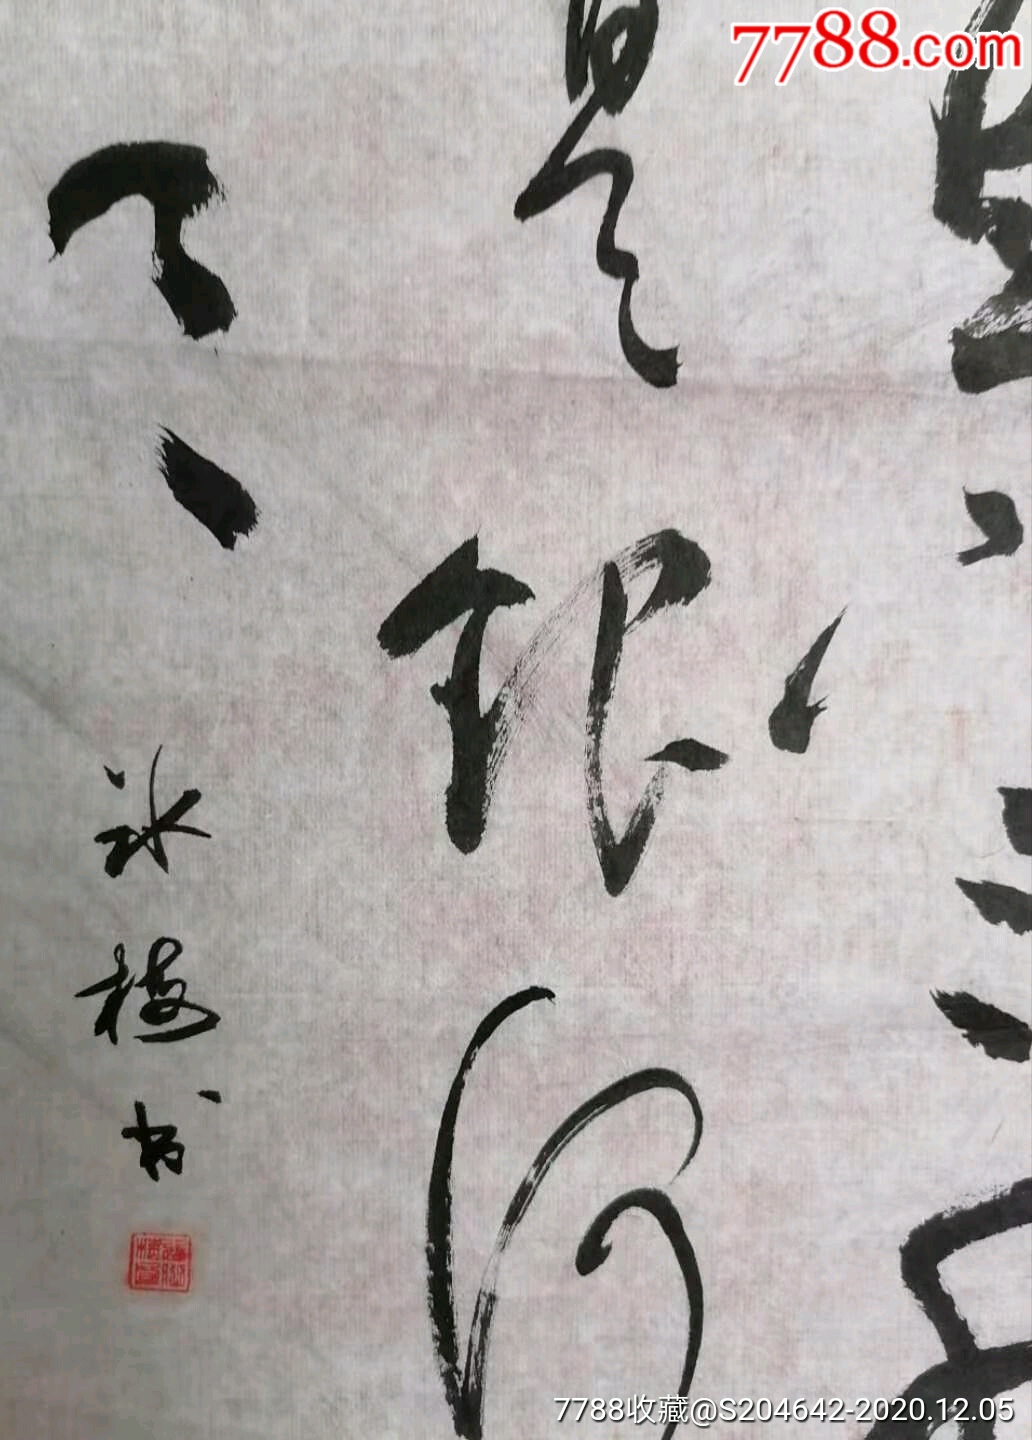 7788.com
直下三
是银河
天
冰梅书
7788收藏@S204642-2020.12.05